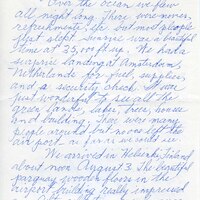 Over the ocean we flew
all night long. There were movies,
refreshments etc. but most people
just slept. Sun rise was a beautiful
time at 35,000 ft up. We had a
surprise landing at Amsterdam,
Netherlands for fuel, supplies
and a security check. It was
just wonderful to see all the
green land, lakes, trees, houses
and buildings. There were many
people around but no one left the
air port as far as we could see.
We arrived in Helsinki, Finland
about noon August 3. The beautiful
parquay wooden floors in the
airport building really impressed